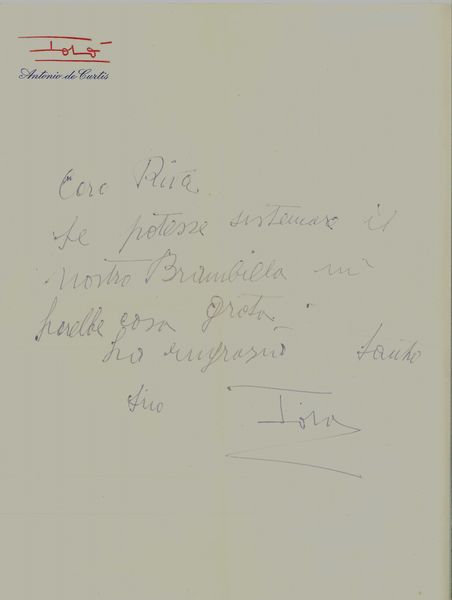 Totò
Antonio de Curtis
Caro Riva
se potesse sistemare il
nostro Brambilla mi
farebbe cosa grata.
La ringrazio tanto
Suo Totò